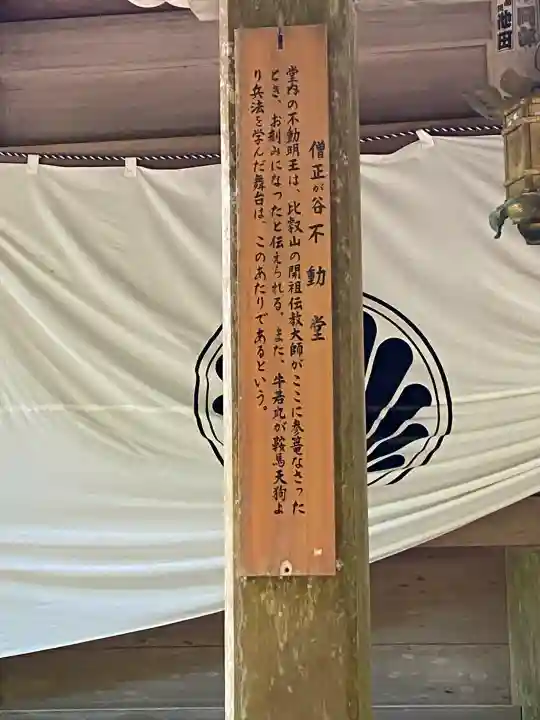 僧正が谷不動堂
堂内の不動明王は、比叡山の開祖伝教大師がここに参篭なさった
とき、お刻みになったと伝えられる。また、牛若丸が鞍馬天狗よ
り兵法を学んだ舞台は、このあたりであるという。
池田